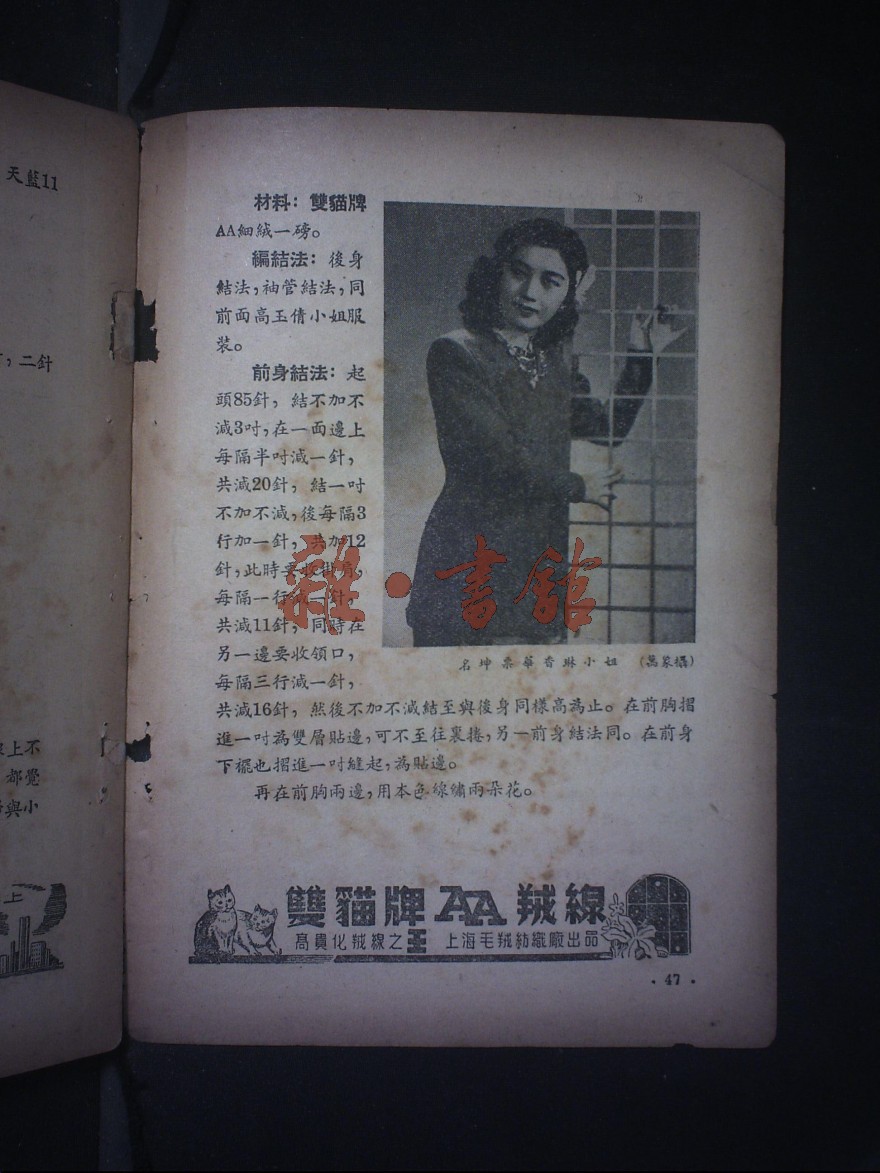 天藍11
，二針
上不
都覺
與小
上
材料：雙貓牌
AA細絨一磅。
編結法：後身
結法，袖管結法，同
前面高玉倩小姐服
裝。
前身結法：起
頭85針，結不加不
減3吋，在一面邊上
每隔半吋減一針，
共減20針，結一吋
不加不減，後每隔3
行加一針，共加12
針，此時要收掛肩，
每隔一行減一針，
共減11針，同時在
另一邊要收領口，
每隔三行減一針，
名坤票華香琳小姐 (萬象攝)
共減16針，然後不加不減結至與後身同樣高為止。在前胸摺
進一吋為雙層貼邊，可不至往裏捲，另一前身結法同。在前身
下襬也摺進一吋縫起，為貼邊。
再在前胸兩邊，用本色線繡兩朵花。
雜·書館
雙貓牌AA羢線
高貴化羢線之王 上海毛羢紡織廠出品
·47·